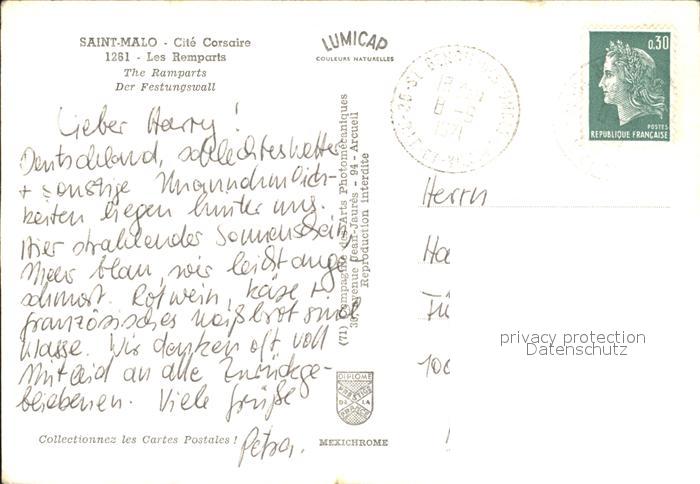 SAINT-MALO - Cité Corsaire
1261 - Les Remparts
The Ramparts
Der Festungswall
LUMICAP
COULEURS NATURELLES
Lieber Harry!
Deutschland, schlechtes Wetter
+ sonstige Unannehmlich-
keiten liegen hinter uns.
Hier strahlender Sonnenschein
Meer blau, wir leicht ange
schmort. Rotwein, Käse +
französisches Weißbrot sind
Klasse. Wir denken oft voll
Mitleid an alle Zurückge-
bliebenen. Viele Grüße
Petra.
Collectionnez les Cartes Postales !
(71) Compagnie des Arts Photomécaniques
Avenue Jean-Jaurès - 94 - Arcueil
Reproduction interdite
DIPLOME
PRESTIGE
DE LA
FRANCE
MEXICHROME
8-6
1971
0,30
POSTES
REPUBLIQUE FRANÇAISE
Herrn
Ha
Fü
privacy protection
Datenschutz